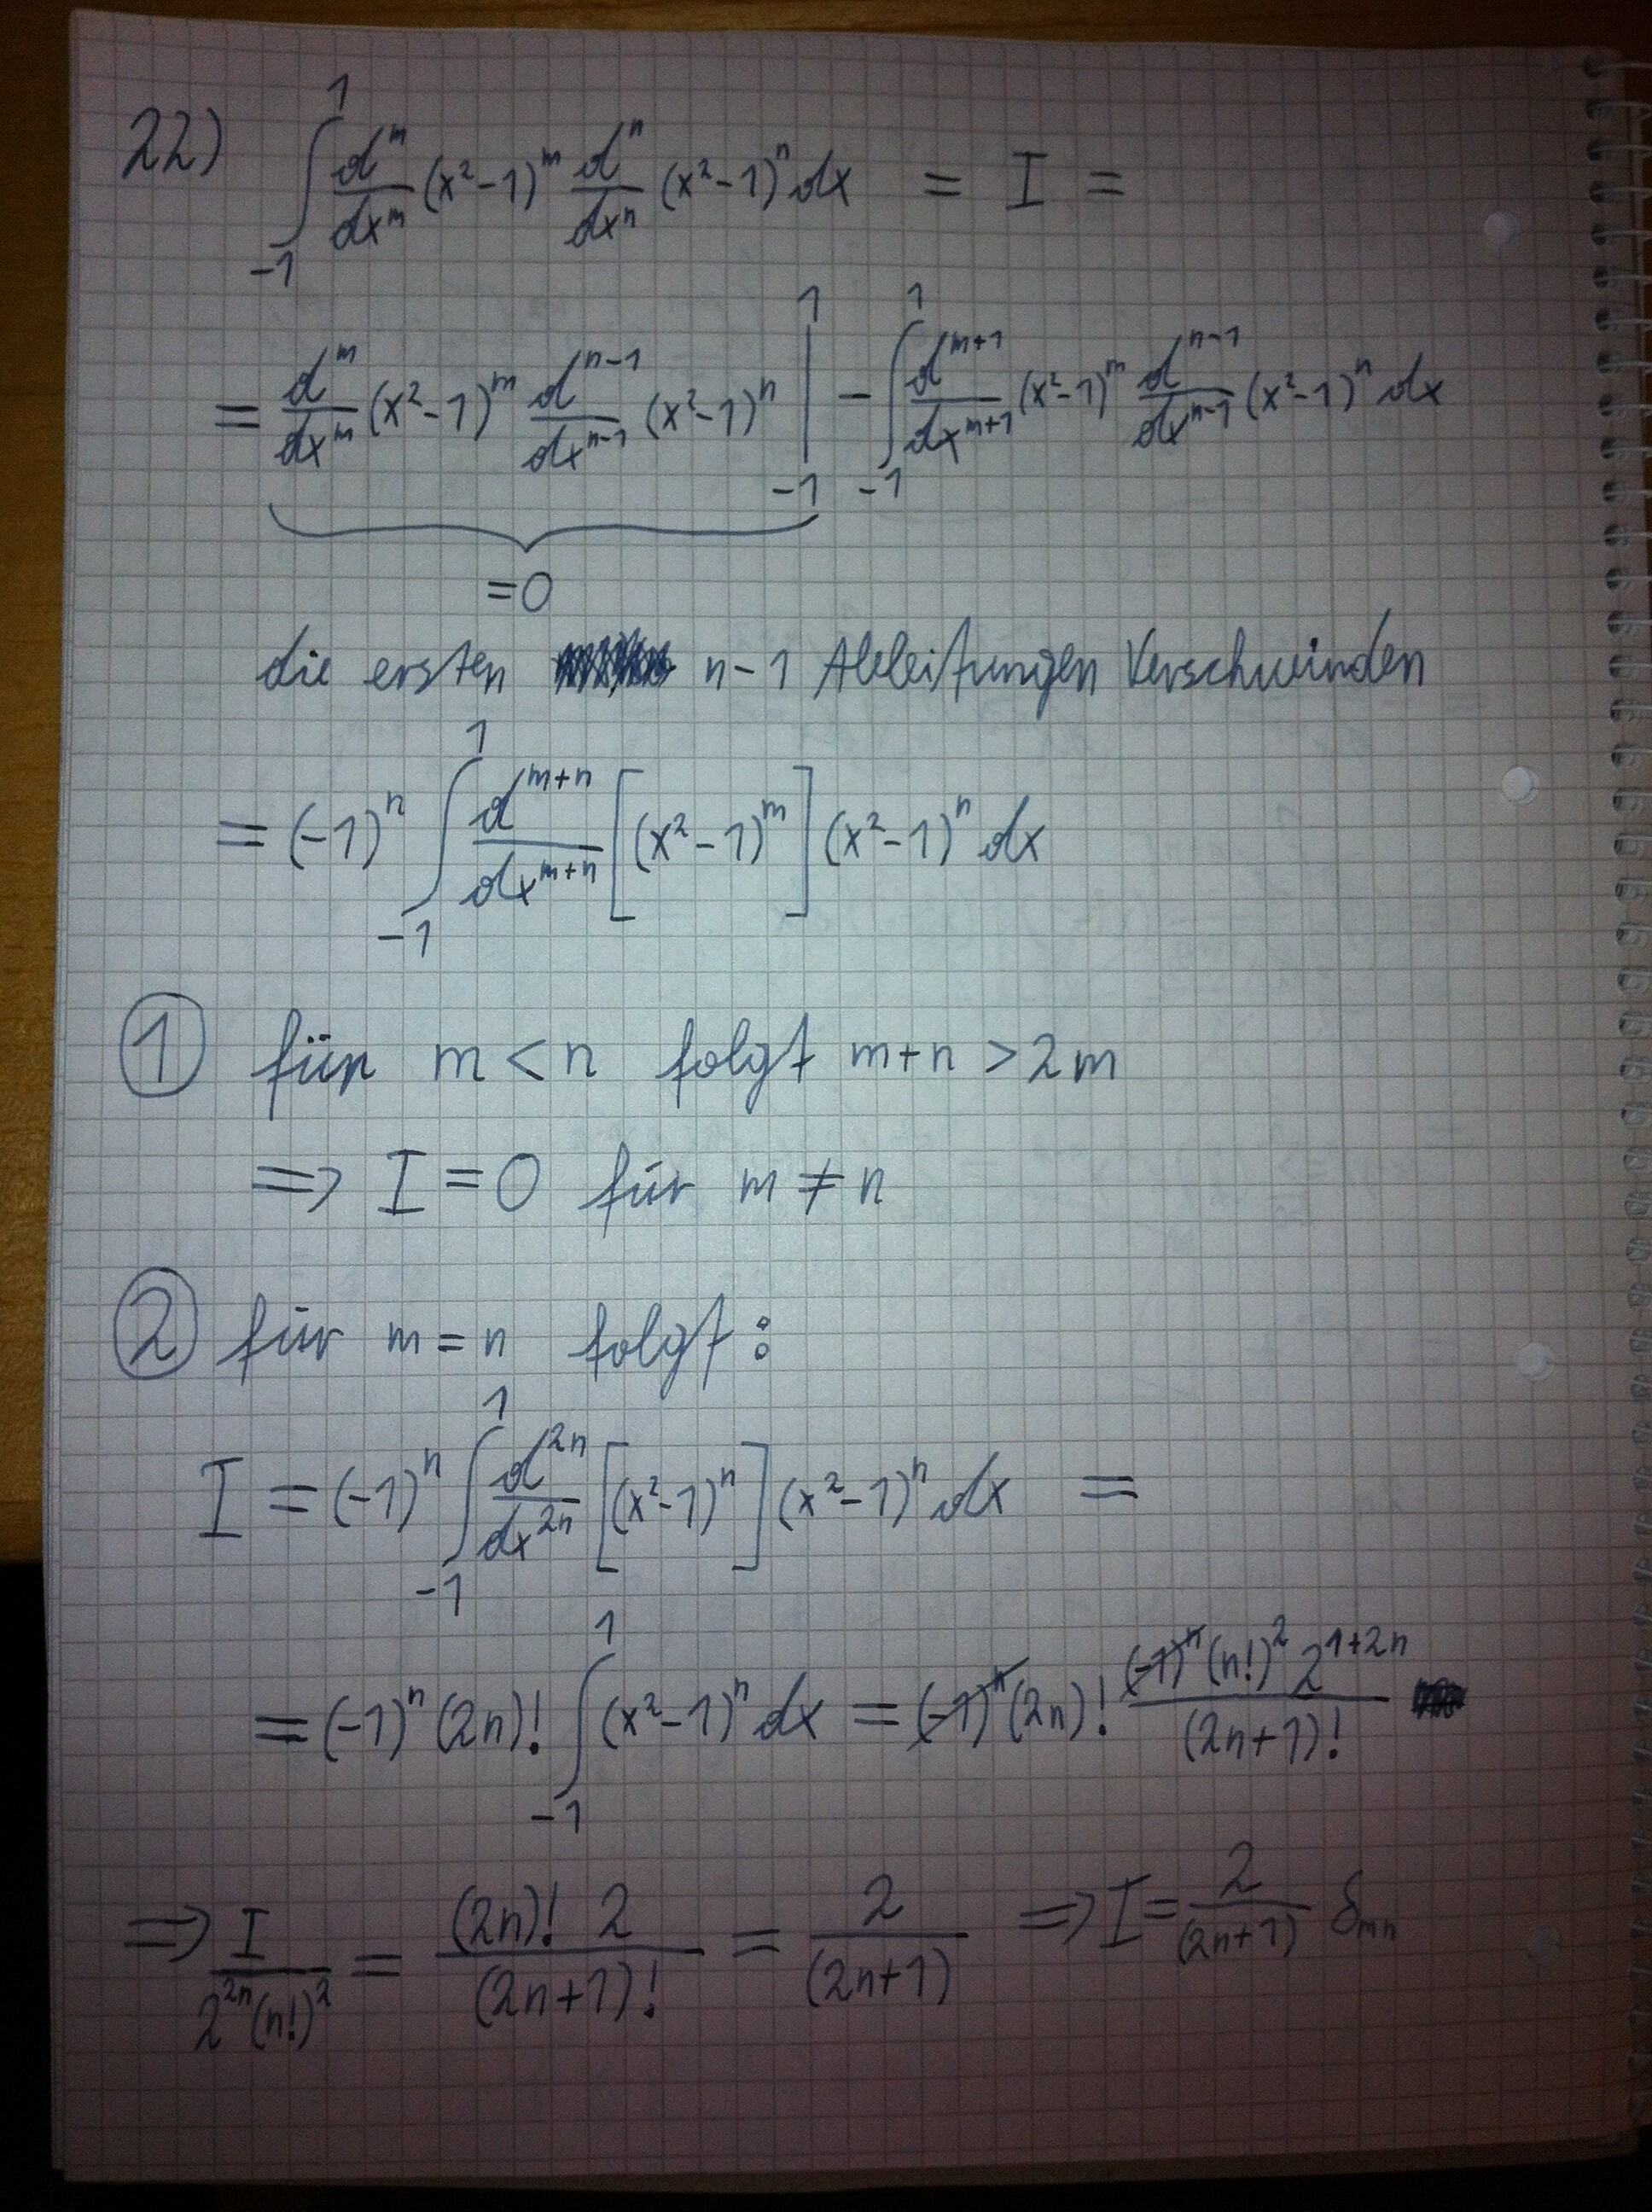 22) ∫_{-1}^{1} d^m/dx^m (x²-1)^m d^n/dx^n (x²-1)^n dx = I =
= d^m/dx^m (x²-1)^m d^{n-1}/dx^{n-1} (x²-1)^n |_{-1}^{1} - ∫_{-1}^{1} d^{m+1}/dx^{m+1} (x²-1)^m d^{n-1}/dx^{n-1} (x²-1)^n dx
=0
die ersten n-1 Ableitungen Verschwinden
= (-1)^n ∫_{-1}^{1} d^{m+n}/dx^{m+n} [(x²-1)^m] (x²-1)^n dx
① für m < n folgt m+n > 2m
=> I = 0 für m ≠ n
② für m = n folgt:
I = (-1)^n ∫_{-1}^{1} d^{2n}/dx^{2n} [(x²-1)^n] (x²-1)^n dx =
= (-1)^n (2n)! ∫_{-1}^{1} (x²-1)^n dx = (-1)^n (2n)! (-1)^n (n!)² 2^{1+2n} / (2n+1)!
=> I / 2^{2n}(n!)² = (2n)! 2 / (2n+1)! = 2 / (2n+1) => I = 2 / (2n+1) δ_{mn}